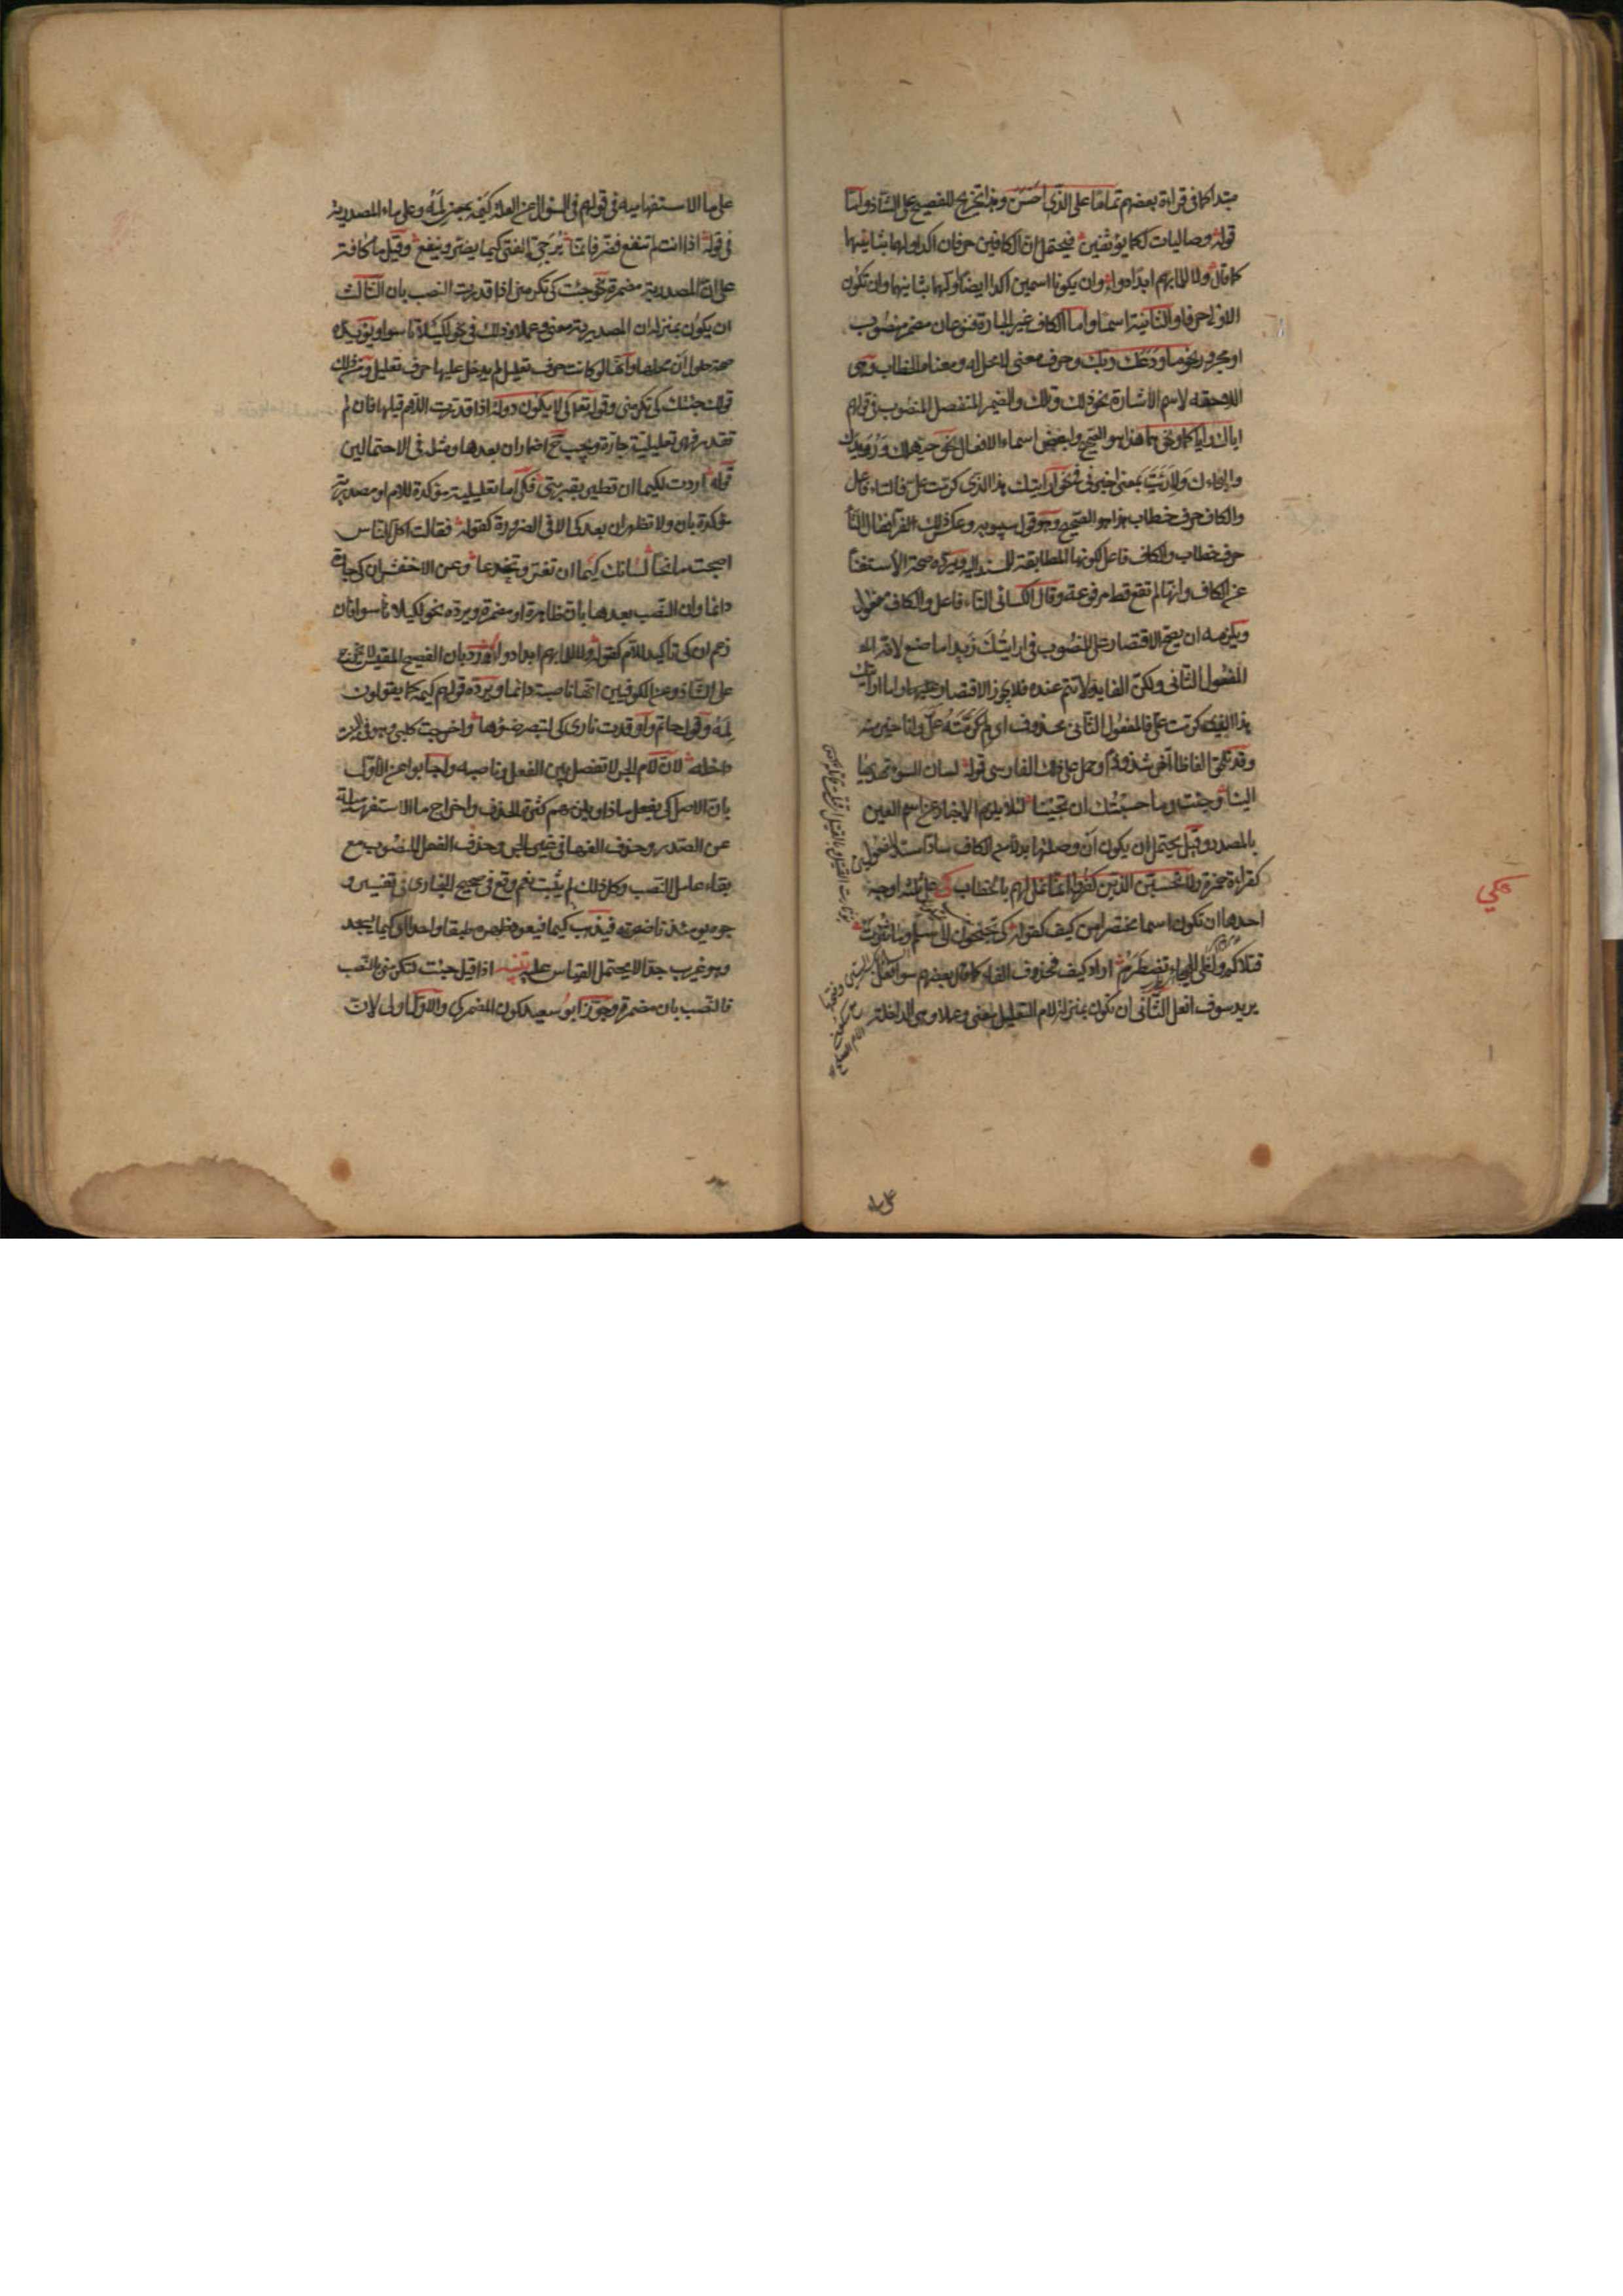 مبتدا كما فى قراءة بعضهم تماما على الذى احسن وهذا تخريج للفصيح على الشاذ واما
قوله وصاليات ككما يؤثفين فيحتمل ان الكافين حرفان اكد اولهما بثانيهما
كما قال ولا للما بهم ابدا دواء وان يكونا اسمين اكد ايضا اولهما بثانيهما وان تكون
الاولى حرفا والثانية اسما واما الكاف غير الجارة فنوعان مضمر منصوب
او مجرور نحو ما ودعك ربك وحرف معنى لا محل له ومعناه الخطاب وهى
اللاحقه لاسم الاشارة نحو ذلك وتلك والضمير المنفصل المنصوب فى قولهم
اياك واياكما ونحوهما هذا هو الصحيح ولبعض اسماء الافعال نحو حيهلك ورويدك
والنجاءك ولارئيت بمعنى اخبرنى نحو ارايتك هذا الذى كرمت على فالتاء فاعل
والكاف حرف خطاب هذا هو الصحيح وهو قول سيبويه وعكس ذلك الفراء فقال التاء
حرف خطاب والكاف فاعل لكونها المطابقة للمسند اليه ويرده صحة الاستغناء
عن الكاف وانها لم تقع قط مرفوعة وقال الكسائى التاء فاعل والكاف مفعول
ويلزمه ان يصح الاقتصار على المنصوب فى ارايتك زيدا ما صنع لانه
المفعول الثانى ولكن الفايدة لا تتم عنده فلا يجوز الاقتصار واما ارايتك
هذا الذى كرمت على فالمفعول الثانى محذوف اى لم كرمته على وانا خير منه
وقد تلحق الفاظا اخر شذوذا وحمل على ذلك الفارسى قوله لسان السوء تهديها
الينا وحنت وما حسبتك ان تحينا لئلا يلزم الاخبار عن اسم العين
بالمصدر وقيل يحتمل ان يكون ان وصلتها بدلا من الكاف سادا مسد المفعولين
كقراءة حمزة ولا تحسبن الذين كفروا انما نملى لهم بالخطاب كى على ثلثة اوجه
احدها ان تكون اسما مختصرا من كيف كقوله كى تجنحون الى سلم وما ثئرت
قتلاكم ولظى الهيجاء تضطرم اراد كيف فحذف الفاء كما قال بعضهم سو افعل
يريد سوف افعل الثانى ان تكون بمنزلة لام التعليل معنى وعملا وهى الداخلة
كي
على ما
على ما الاستفهاميه فى قولهم فى السؤال عن العلة كيمه بمعنى لمه وعلى ماء المصدرية
فى قوله اذا انت لم تنفع فضر فانما يرجى الفتى كيما يضر وينفع وقيل ما كافة
على ان المصدرية مضمرة نحو جئت كى تكرمنى اذا قدرت النصب بان الثالث
ان يكون بمنزلة ان المصدرية معنى وعملا وذلك فى نحو لكيلا تاسوا ويؤيده
صحة حلول ان محلها وانها لو كانت حرف تعليل لم يدخل عليها حرف تعليل ومن ذلك
قولك جئتك كى تكرمنى وقوله تعالى كى لا يكون دولة اذا قدرت اللام قبلها فان لم
تقدر فهى تعليلية جارة ويجب ح اضمار ان بعدها ومثله فى الاحتمالين
قوله اردت لكيما ان تطير بقربتى فكى اما تعليلية مؤكدة للام او مصدرية
مؤكدة بان ولا تظهر ان بعد كى الا فى الضرورة كقوله فقالت اكل الناس
اصبحت مانحا لسانك كيما ان تغر وتخدعا وعن الاخفش ان كى جارة
دائما وان النصب بعدها بان ظاهرة او مضمرة ويرده نحو لكيلا تاسوا فان
زعم ان كى تاكيد للام كقوله ولا للما بهم ابدا دواء رد بان الفصيح المقيس لا يخرج
على الشاذ وعن الكوفيين انها ناصبة دائما ويرده قولهم كيمه كما يقولون
لمه وقول حاتم واوقدت نارى كى لتبصر ضوءها واخرجت كلبى وهو فى البيت
داخله لان لام الجر لا تفصل بين الفعل وناصبه واجابوا عن الاول
بان الاصل كى يفعل ماذا ويلزمهم كثرة الحذف واخراج ما الاستفهامية
عن الصدر وحذف الفها فى غير الجر وحذف الفعل المنصوب مع
بقاء عامل النصب وكل ذلك لم يثبت نعم وقع فى صحيح البخارى فى تفسير و
جوه يومئذ ناضرة فيذهب كيما فيعود ظهره طبقا واحدا اى كيما يسجد
وهو غريب جدا لا يحتمل القياس عليه تنبيه اذا قيل جئت لتكرمنى بالنصب
فالنصب بان مضمرة وجوز ابو سعيد كون المضمر كى والاول اولى لان